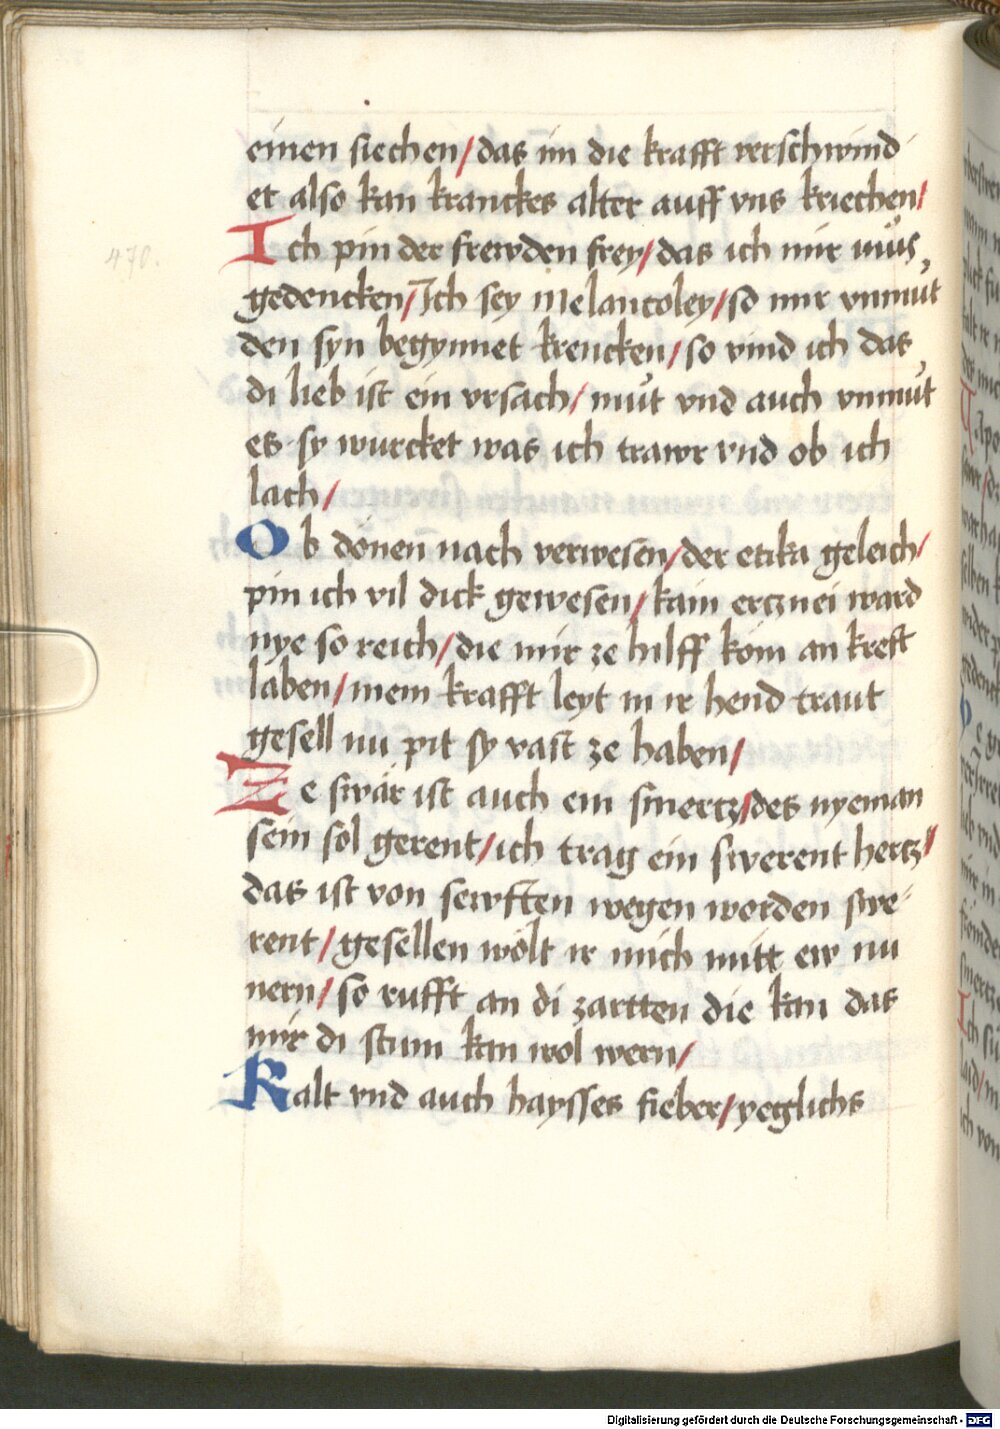 einen siechen / das im die krafft verschwind
et also kan kranckes alter auff vns kriechen /
Ich pin der frewden frey / das ich mir mus
470.
gedencken / Ich sey Melancoley / so mir vnmut
den syn begynnet krencken / so vind ich das
di lieb ist ein vrsach / mut vnd auch vnmut
es sy wurcket was ich trawr vnd ob ich
lach /
Ob dönen nach verwesen / der etika geleich /
pin ich vil dick gewesen / kain ercznei ward
nye so reich / die mir ze hilff köm an kreft
laben / mein krafft leyt in ir hend traut
gesell nu pit sy vast ze haben /
Ze swär ist auch ein smertz / des nyeman
sein sol gerent / ich trag ein swerent hertz /
das ist von sewften wegen worden swe-
rent / gesellen wölt ir mich mitt ew nu
nern / so rufft an di zartten die kan das
mir di stum kan wol wern /
Kalt vnd auch haysses fieber / yeglichs
Digitalisierung gefördert durch die Deutsche Forschungsgemeinschaft - DFG